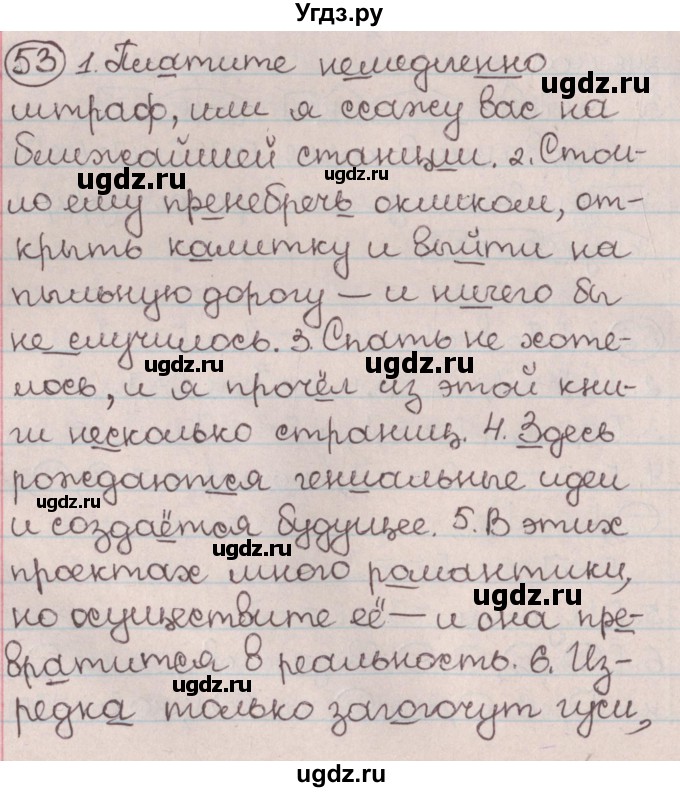 Угдз.ру
53 1. Платите немедленно
штраф, или я ссажу вас на
ближайшей станции. 2. Стои-
ло ему пренебречь окликом, от-
крыть калитку и выйти на
пыльную дорогу — и ничего бы
не случилось. 3. Спать не хоте-
лось, и я прочёл из этой кни-
ги несколько страниц. 4. Здесь
рождаются гениальные идеи
и создаётся будущее. 5. В этих
проектах много романтики,
но осуществите её — и она пре-
вратится в реальность. 6. Из-
редка только загогочут гуси,
ugdz.ru
ugdz.ru
ugdz.ru
ugdz.ru
ugdz.ru
ugdz.ru
ugdz.ru
ugdz.ru
ugdz.ru
ugdz.ru
ugdz.ru
ugdz.ru